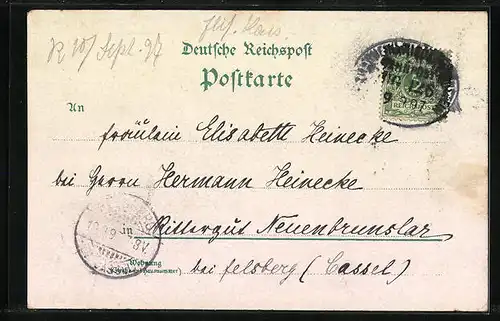 R 10/ Sept. 97
Deutsche Reichspost
Postkarte
An
Fräulein Elisabeth Heinecke
bei Herrn Hermann Heinecke
in
Rittergut Neuenbrunslar
Wohnung
bei Felsberg (Cassel)